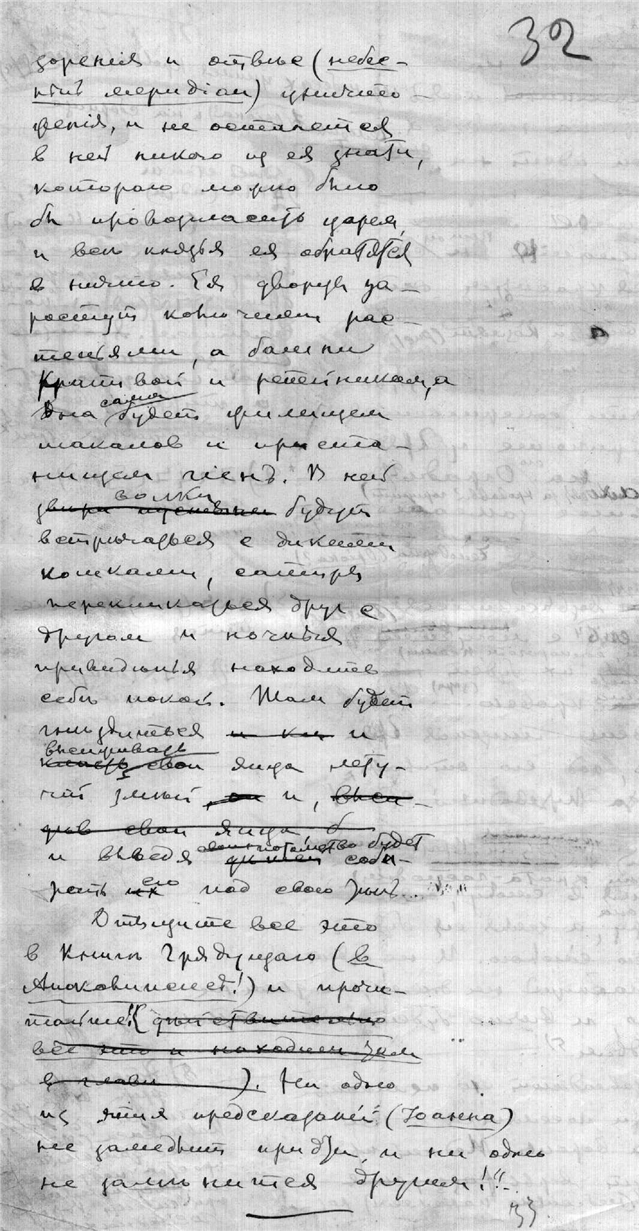 32
зоренія и отвѣсъ (небес-
ный меридіан) уничто-
женія, и не останется
в ней никого из ея знати,
котораго можно было
бы провозгласить царем,
и все князья ея обратятся
в ничто. Ея дворцы за-
ростут колючими рас-
теньями, а башни
Крапивой и репейником, а
Она сама будет жилищем
шакалов и приста-
нищем гіенъ. В ней
звѣри пустыни волки будут
встрѣчаться с дикими
кошками, сатиры
перекликаться друг с
другом и ночныя
привидѣнья находить
себѣ покой. Там будет
гнѣздиться и
высиживать свои яйца лету-
чій змѣй, и,
свои яйца
и выведя свое потомство будет соби-
рать их его под свою тѣнь..."
Отыщите все это
в Книгѣ Грядущаго (в
Апокалипсисѣ!) и прочи-
тайте! (дѣйствительно
все это и находим там
в главѣ ). Ни одно
из этих предсказаній (Іоанна)
не замедлит придти, и ни одно
не замѣнится другим!"
33